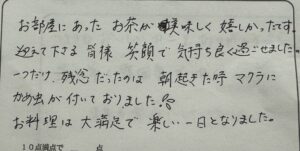 お部屋にあった お茶が美味しく嬉しかったです。
迎えて下さる皆様 笑顔で気持ち良く過ごせました
一つだけ、残念だったのは 朝起きた時 マクラに
かめ虫が付いておりました。
お料理は大満足で楽しい一日となりました。
10点満点で 点